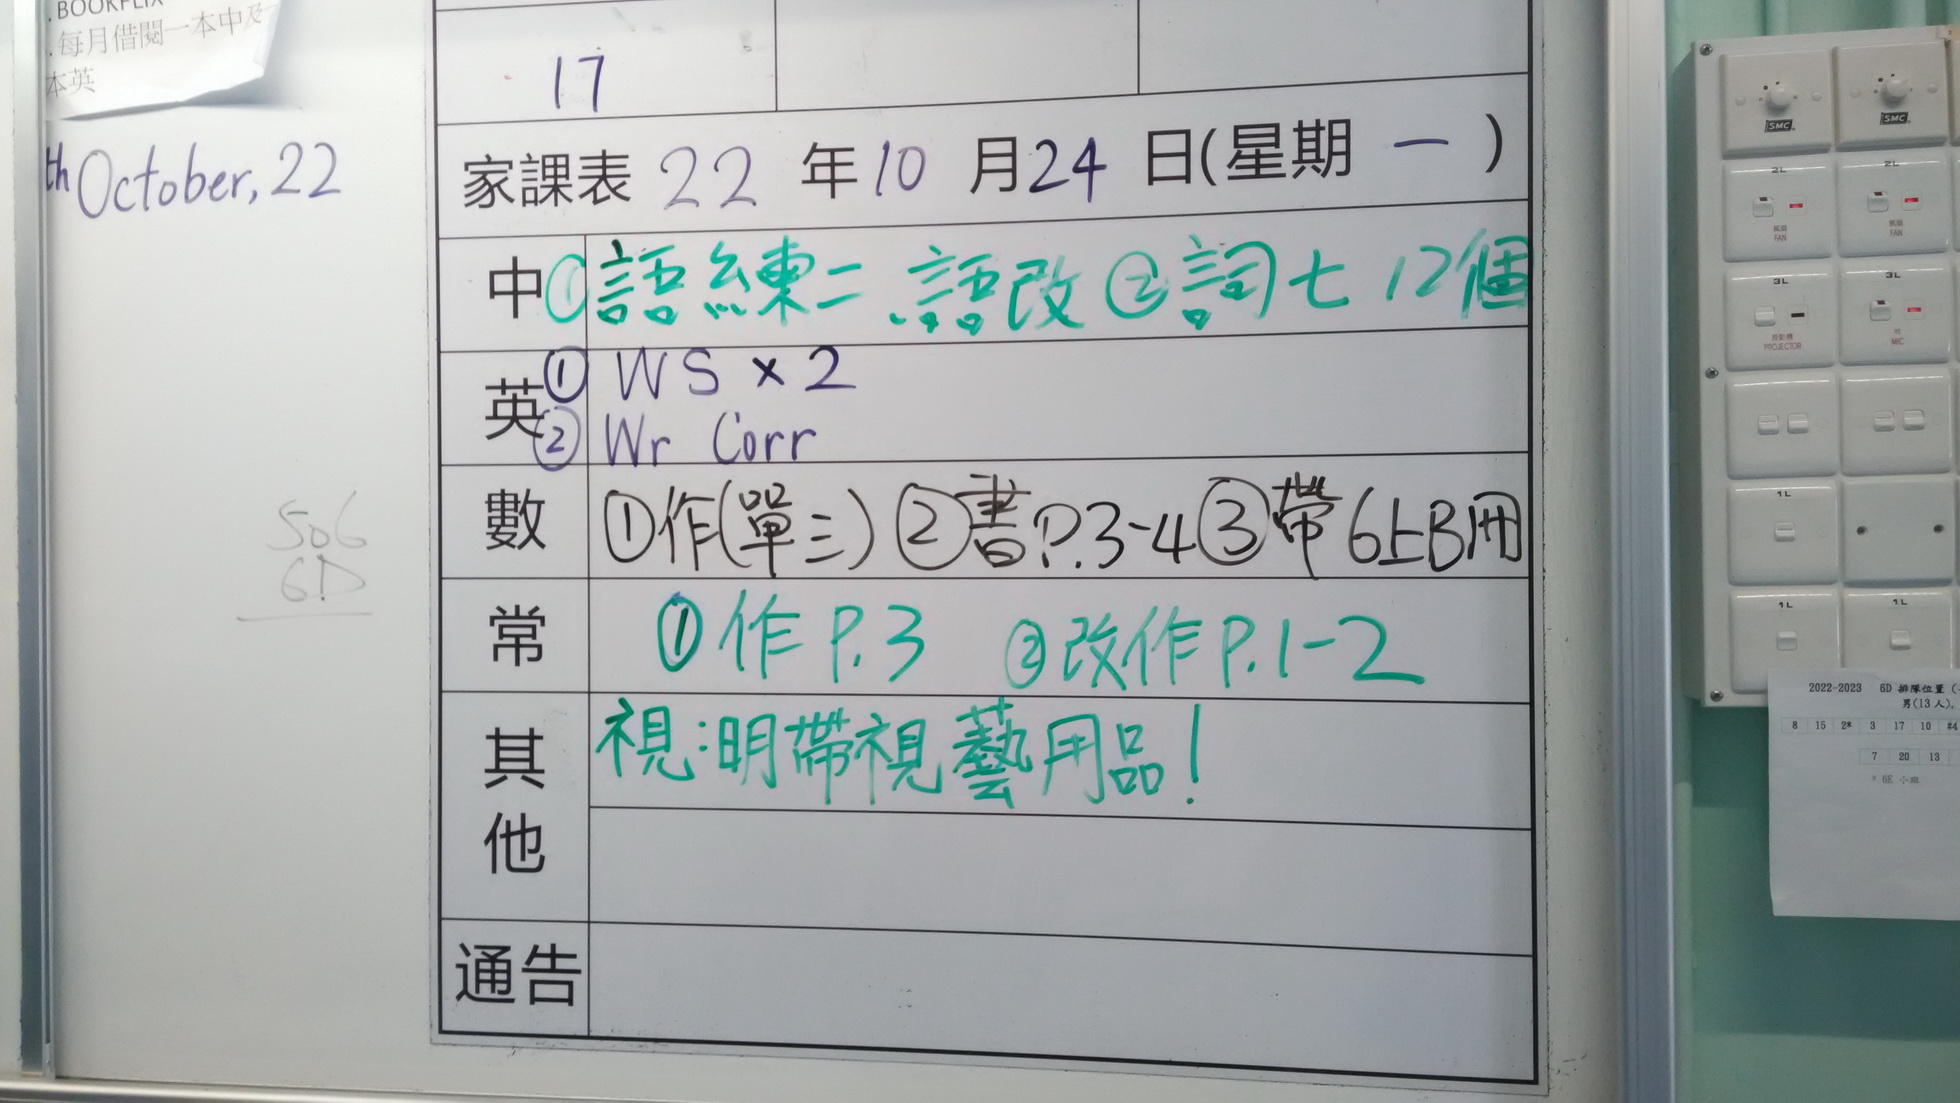 .BOOKFLIX
.每月借閱一本中及一
本英
th October, 22
506
6D
17
家課表 22 年 10 月 24 日(星期 一 )
中 ① 語練二、語改 ② 詞七 12個
英 ① WS × 2
② Wr Corr
數 ①作(單三) ②書P.3-4 ③帶6上B冊
常 ①作 P.3 ②改作 P.1-2
其他 視:明帶視藝用品!
通告
SMC
SMC
2L
2L
風扇
FAN
風扇
FAN
3L
3L
投影機
PROJECTOR
咪
MIC
1L
1L
1L
2022-2023 6D 排隊位置 (
男(13 人),
8 15 2* 3 17 10 #4
7 20 13
* 6E 小組